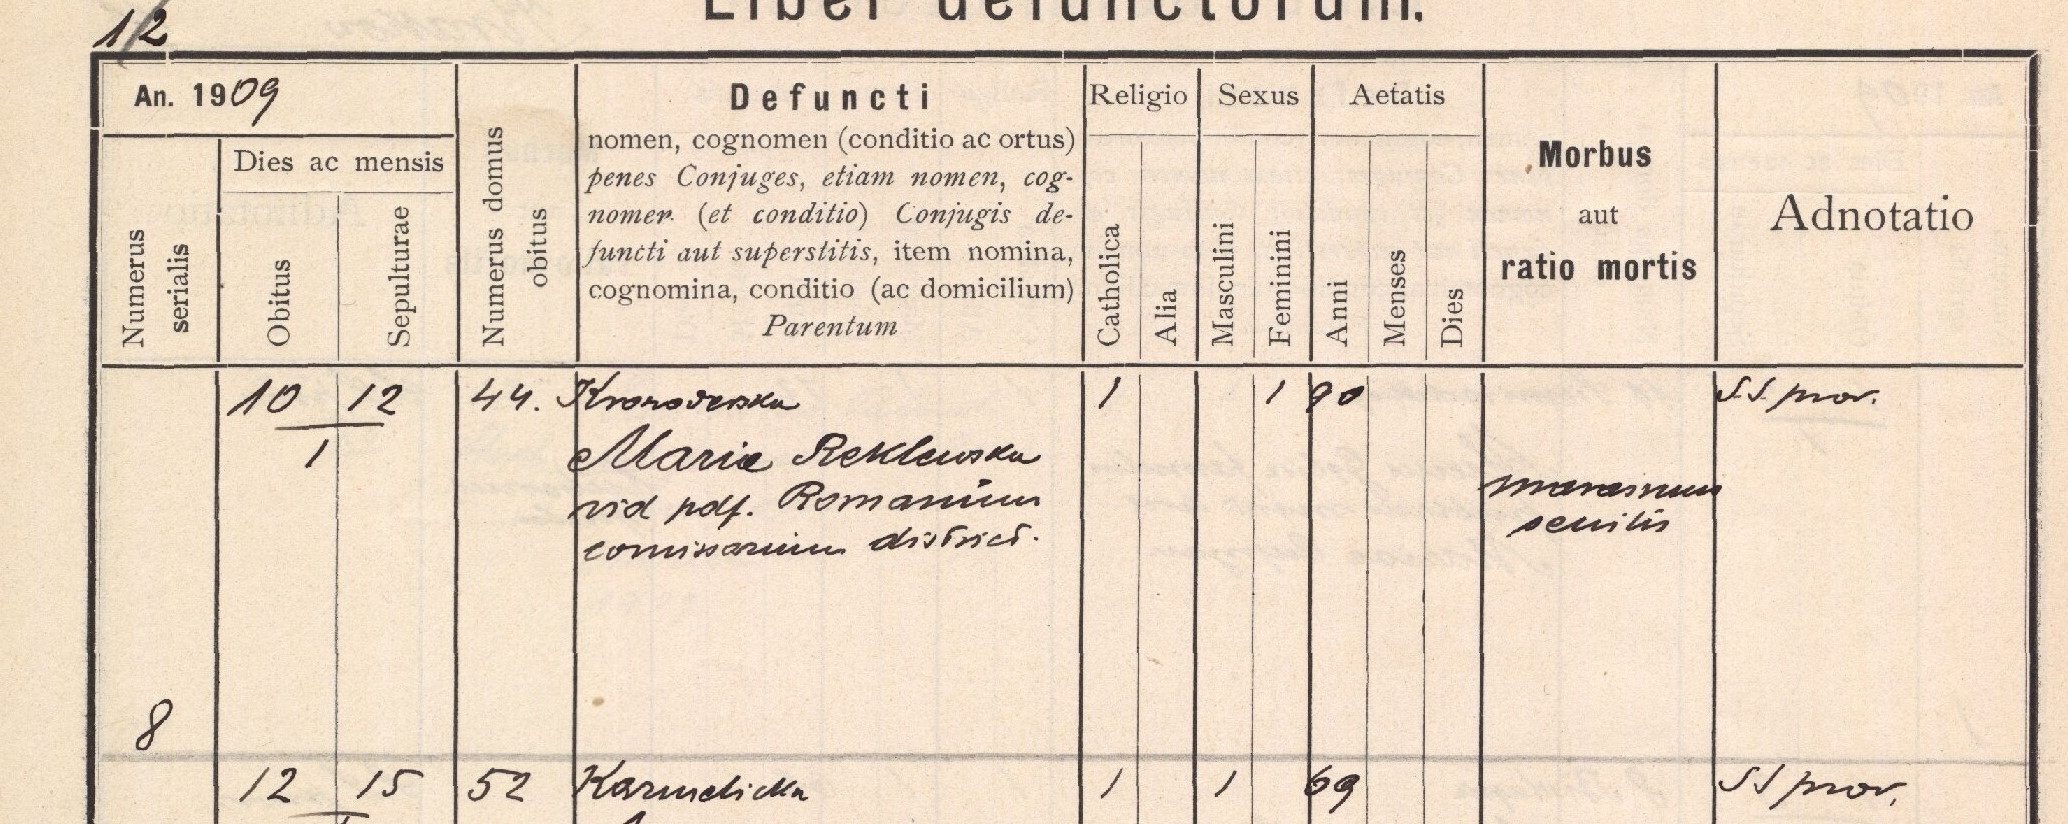 12
Liber defunctorum.
An. 1909
Dies ac mensis
Numerus serialis
Obitus
Sepulturae
Numerus domus obitus
Defuncti
nomen, cognomen (conditio ac ortus)
penes Conjuges, etiam nomen, cog-
nomen (et conditio) Conjugis de-
functi aut superstitis, item nomina,
cognomina, conditio (ac domicilium)
Parentum
Religio
Catholica
Alia
Sexus
Masculini
Feminini
Aetatis
Anni
Menses
Dies
Morbus
aut
ratio mortis
Adnotatio
10 12 44. 1 1 90 S.S. prov.
1
Maria Reklewska
vid pdf. Romanium
comissarium district.
marasmus
senilis
8
12 15 52 Karmelicka 1 1 69 SS prov.